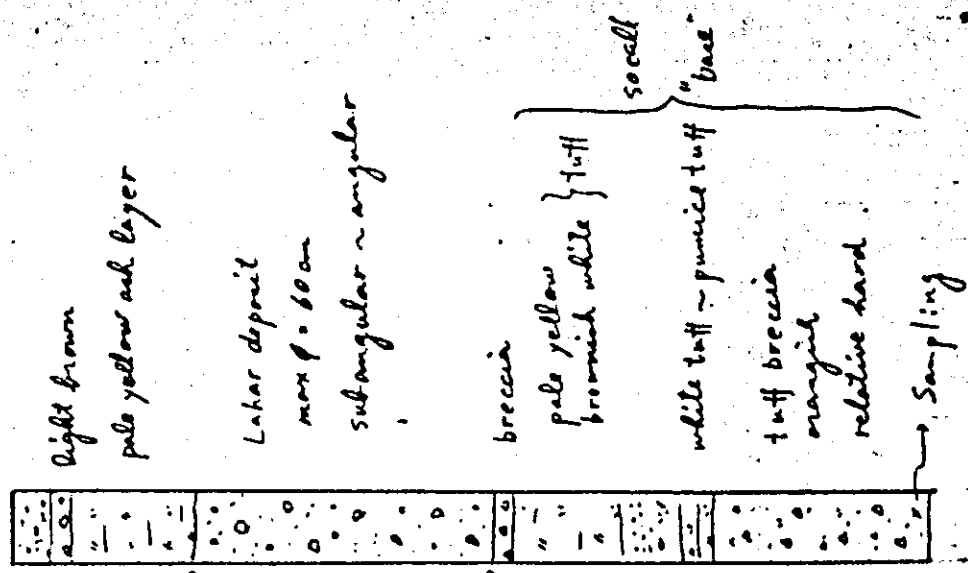 light brown
pale yellow ash layer
Lahar deposit
max φ = 60 cm
subangular ~ angular
breccia
pale yellow
brownish white } tuff
white tuff ~ pumice tuff
tuff breccia
relative hard
socall
"base"
→ Sampling